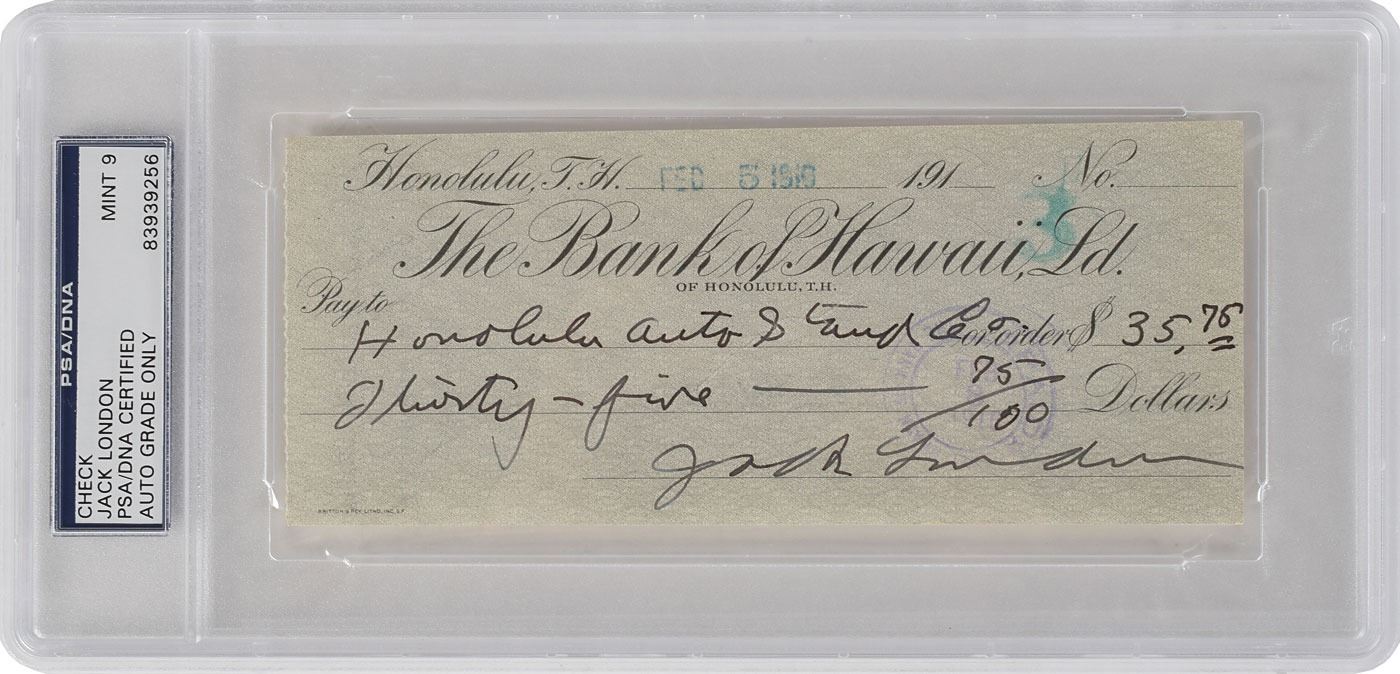 PSA/DNA
CHECK MINT 9
JACK LONDON
PSA/DNA CERTIFIED 83939256
AUTO GRADE ONLY
Honolulu, T.H. FEB 5 1916 191 No.
3
The Bank of Hawaii, Ld.
OF HONOLULU, T.H.
Pay to
Honolulu Auto Stand Co. or order $ 35,75
Thirty-five 75/100 Dollars
Jack London
BRITTON & REY, LITHO, INC, S.F.